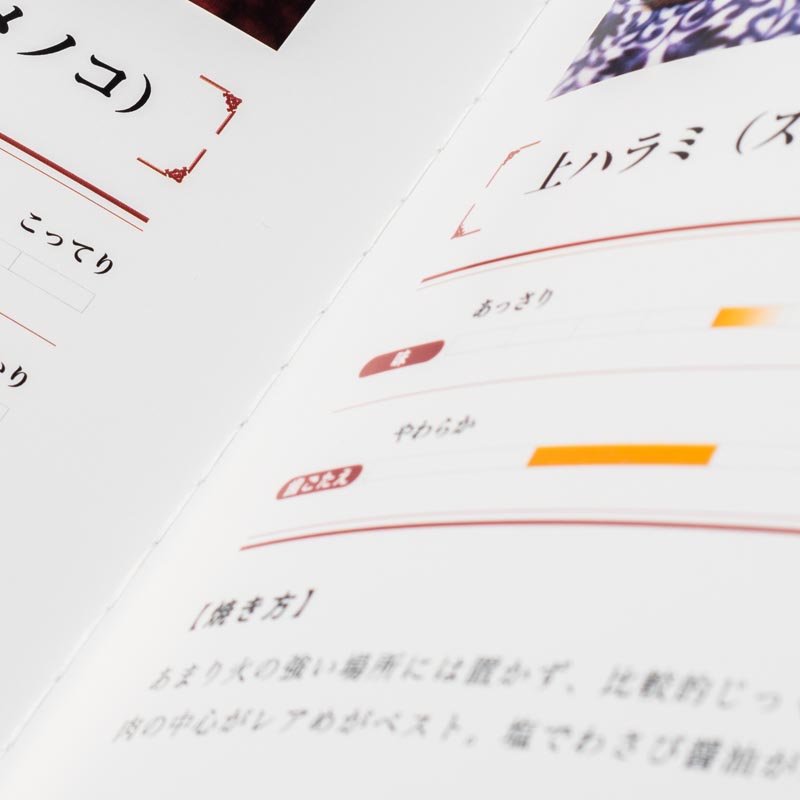 メノコ）
こってり
り
上ハラミ（ス
あっさり
味
やわらか
歯ごたえ
【焼き方】
あまり火の強い場所には置かず、比較的じっ
肉の中心がレアめがベスト。塩でわさび醤油が